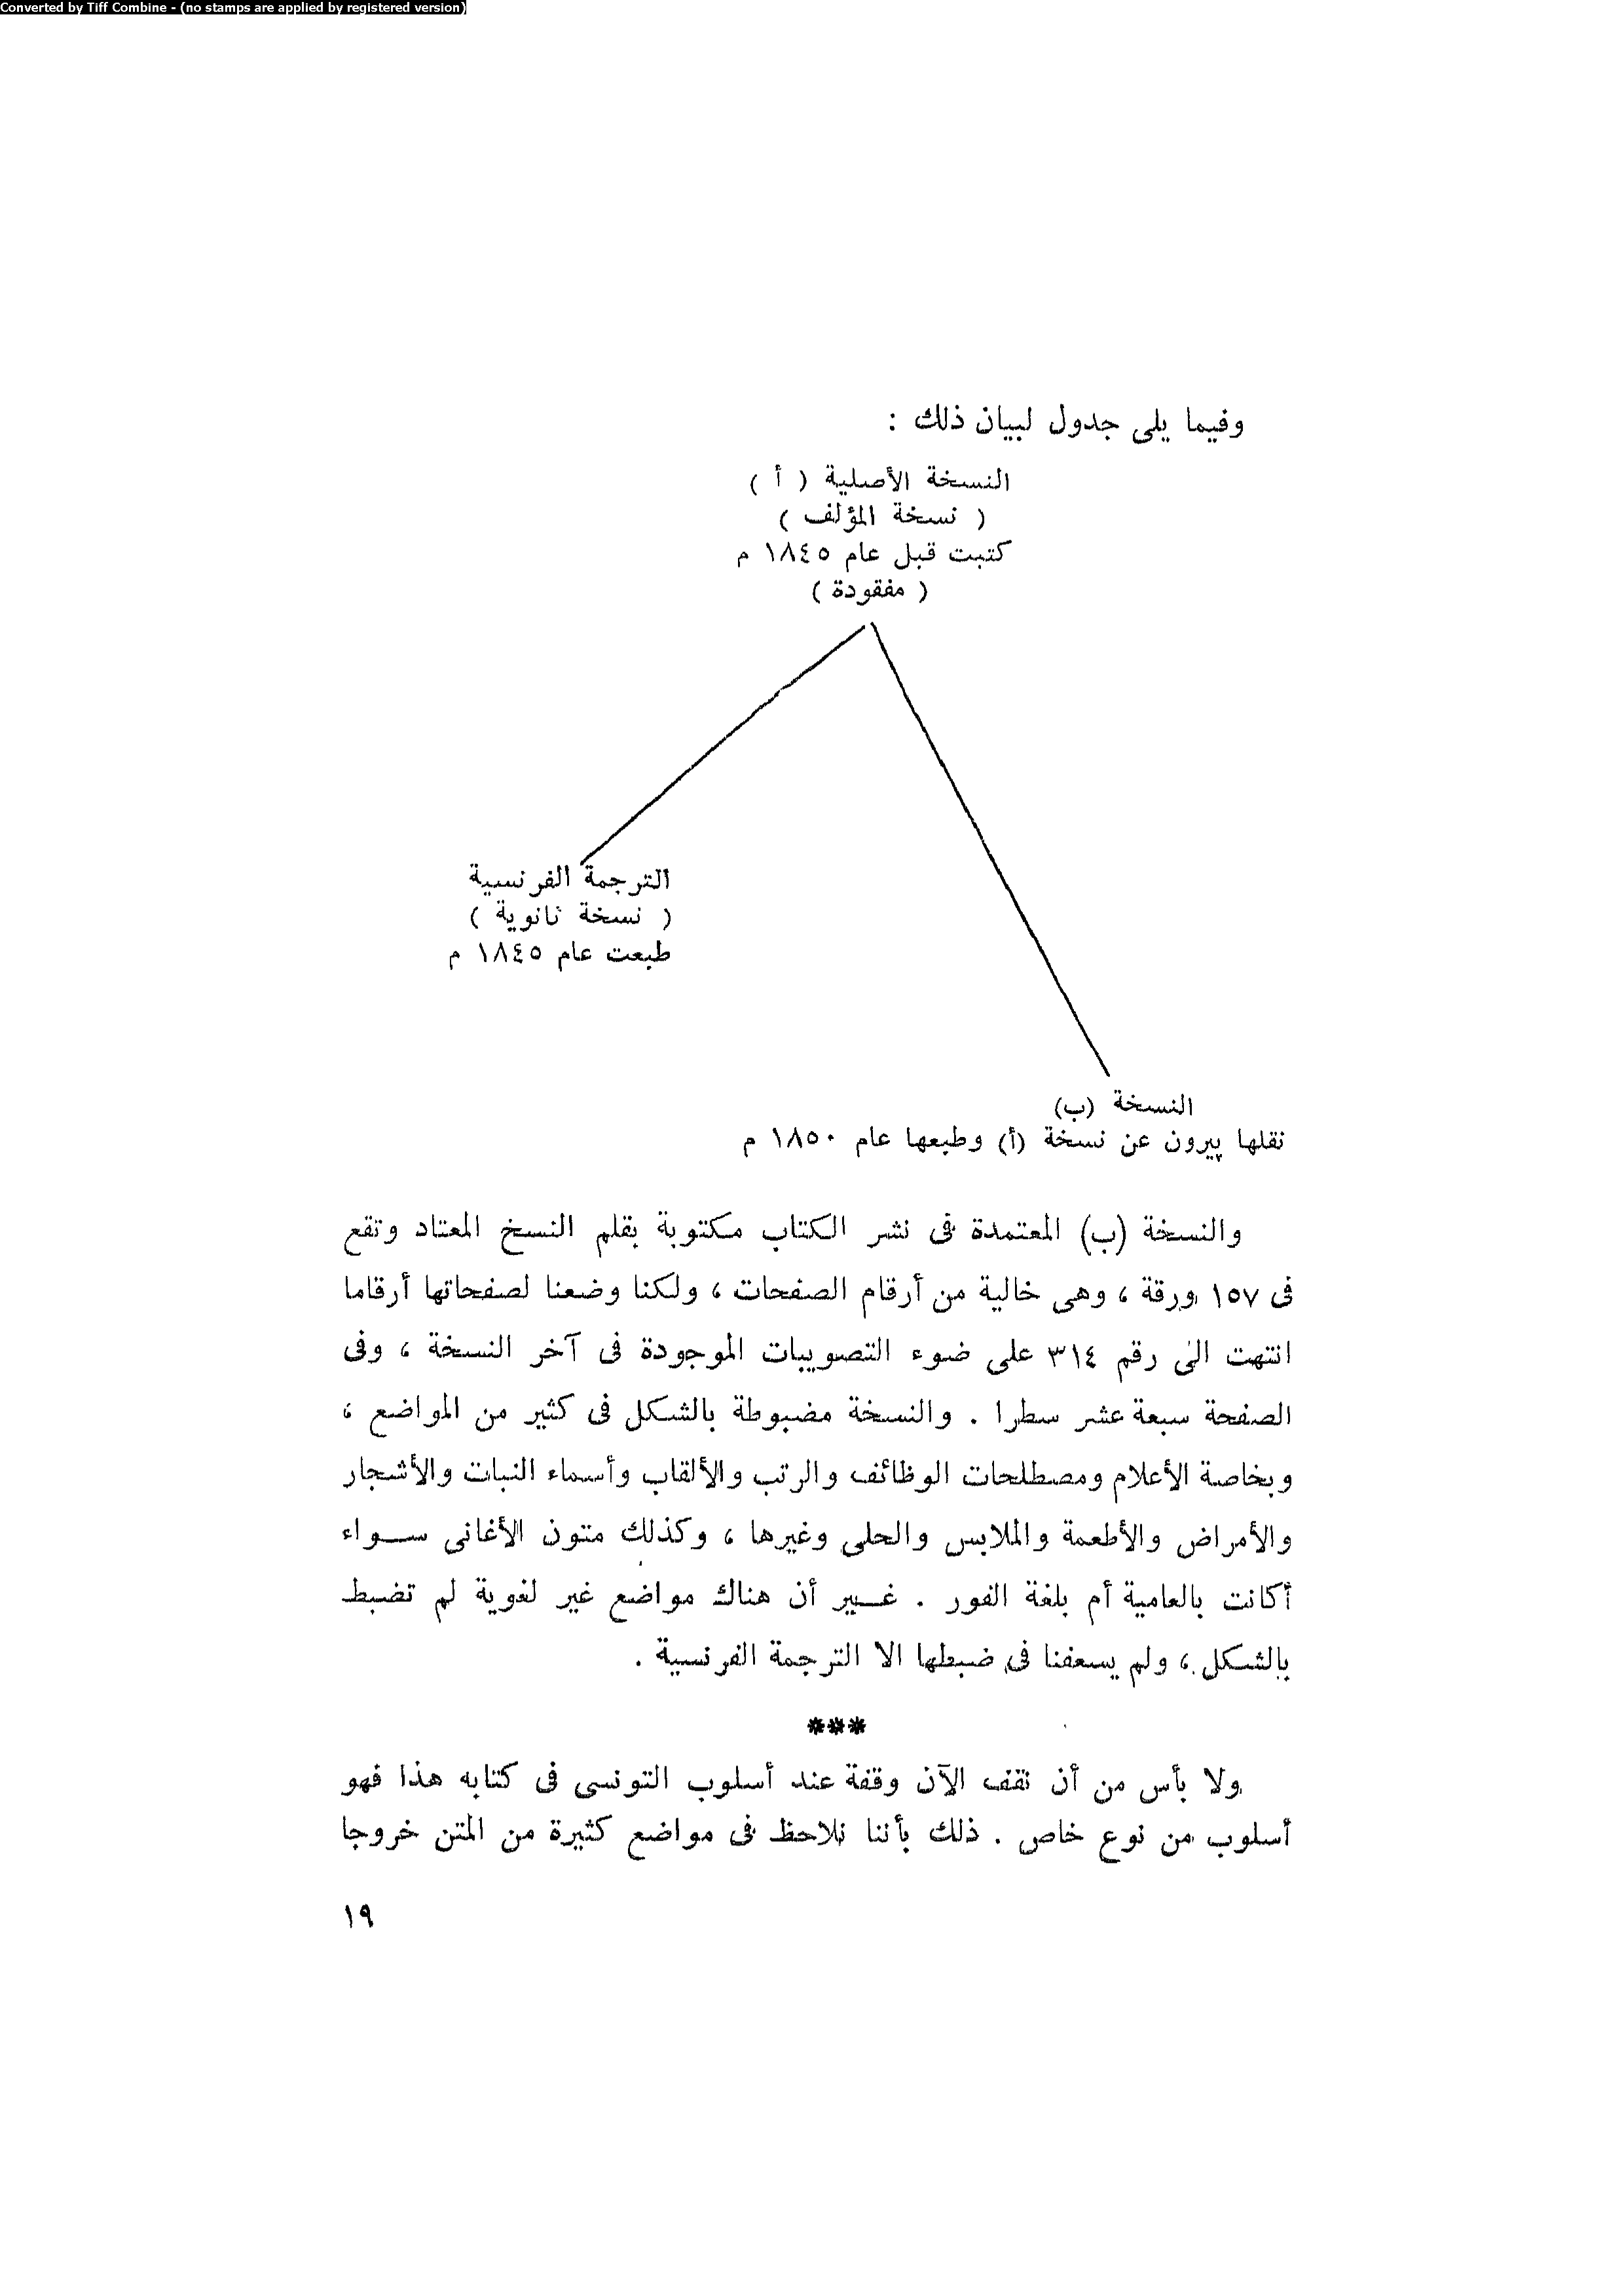 Converted by Tiff Combine - (no stamps are applied by registered version)
وفيما يلى جدول لبيان ذلك :
النسخة الأصلية ( أ )
( نسخة المؤلف )
كتبت قبل عام ١٨٤٥ م
( مفقودة )
الترجمة الفرنسية
( نسخة ثانوية )
طبعت عام ١٨٤٥ م
النسخة (ب)
نقلها پيرون عن نسخة (أ) وطبعها عام ١٨٥٠ م
والنسخة (ب) المعتمدة فى نشر الكتاب مكتوبة بقلم النسخ المعتاد وتقع
فى ١٥٧ ورقة ، وهى خالية من أرقام الصفحات ، ولكنا وضعنا لصفحاتها أرقاما
انتهت الى رقم ٣١٤ على ضوء التصويبات الموجودة فى آخر النسخة ، وفى
الصفحة سبعة عشر سطرا . والنسخة مضبوطة بالشكل فى كثير من المواضع ،
وبخاصة الأعلام ومصطلحات الوظائف والرتب والألقاب وأسماء النبات والأشجار
والأمراض والأطعمة والملابس والحلى وغيرها ، وكذلك متون الأغانى ســواء
أكانت بالعامية أم بلغة الفور . غــير أن هناك مواضع غير لغوية لم تضبط
بالشكل ، ولم يسعفنا فى ضبطها الا الترجمة الفرنسية .
***
ولا بأس من أن نقف الآن وقفة عند أسلوب التونسى فى كتابه هذا فهو
أسلوب من نوع خاص . ذلك بأننا نلاحظ فى مواضع كثيرة من المتن خروجا
١٩